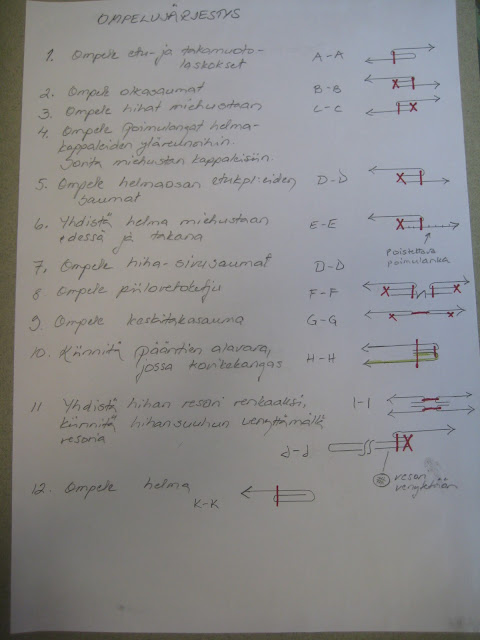 OMPELUJÄRJESTYS
1. Ompele etu- ja takamuoto-
laskokset A-A
2. Ompele olkasaumat B-B
3. Ompele hihat miehustaan C-C
4. Ompele poimulangat helma-
kappaleiden yläreunoihin.
Sovita miehustan kappaleisiin.
5. Ompele helmaosan etukpl:eiden D-D
saumat
6. Yhdistä helma miehustaan E-E
edessä ja takana
poistettava
poimulanka
7. Ompele hiha-sivusaumat D-D
8 Ompele piilovetoketju F-F
9. Ompele keskitakasauma G-G
10. Kiinnitä pääntien alavara,
jossa kovikekangas H-H
11 Yhdistä hihan resori renkaaksi, I-I
kiinnitä hihansuuhun venyttämällä
resoria J-J
resori
venytetään
12. Ompele helma
K-K